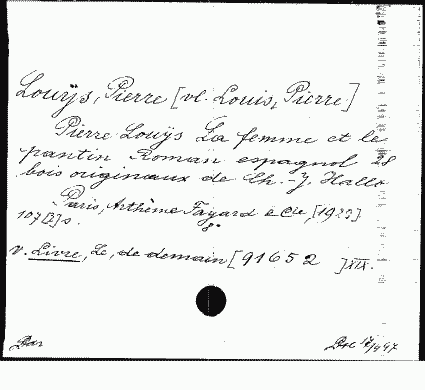 Louÿs, Pierre [vl. Louis, Pierre]
Pierre Louÿs La femme et le
pantin Roman espagnol 28
bois originaux de Ch.-J. Hallo
Paris, Arthème Fayard & Cie, [1923]
107 [2] s. 8°
v. Livre, Le, de demain [91652 ] XIX.
Dar